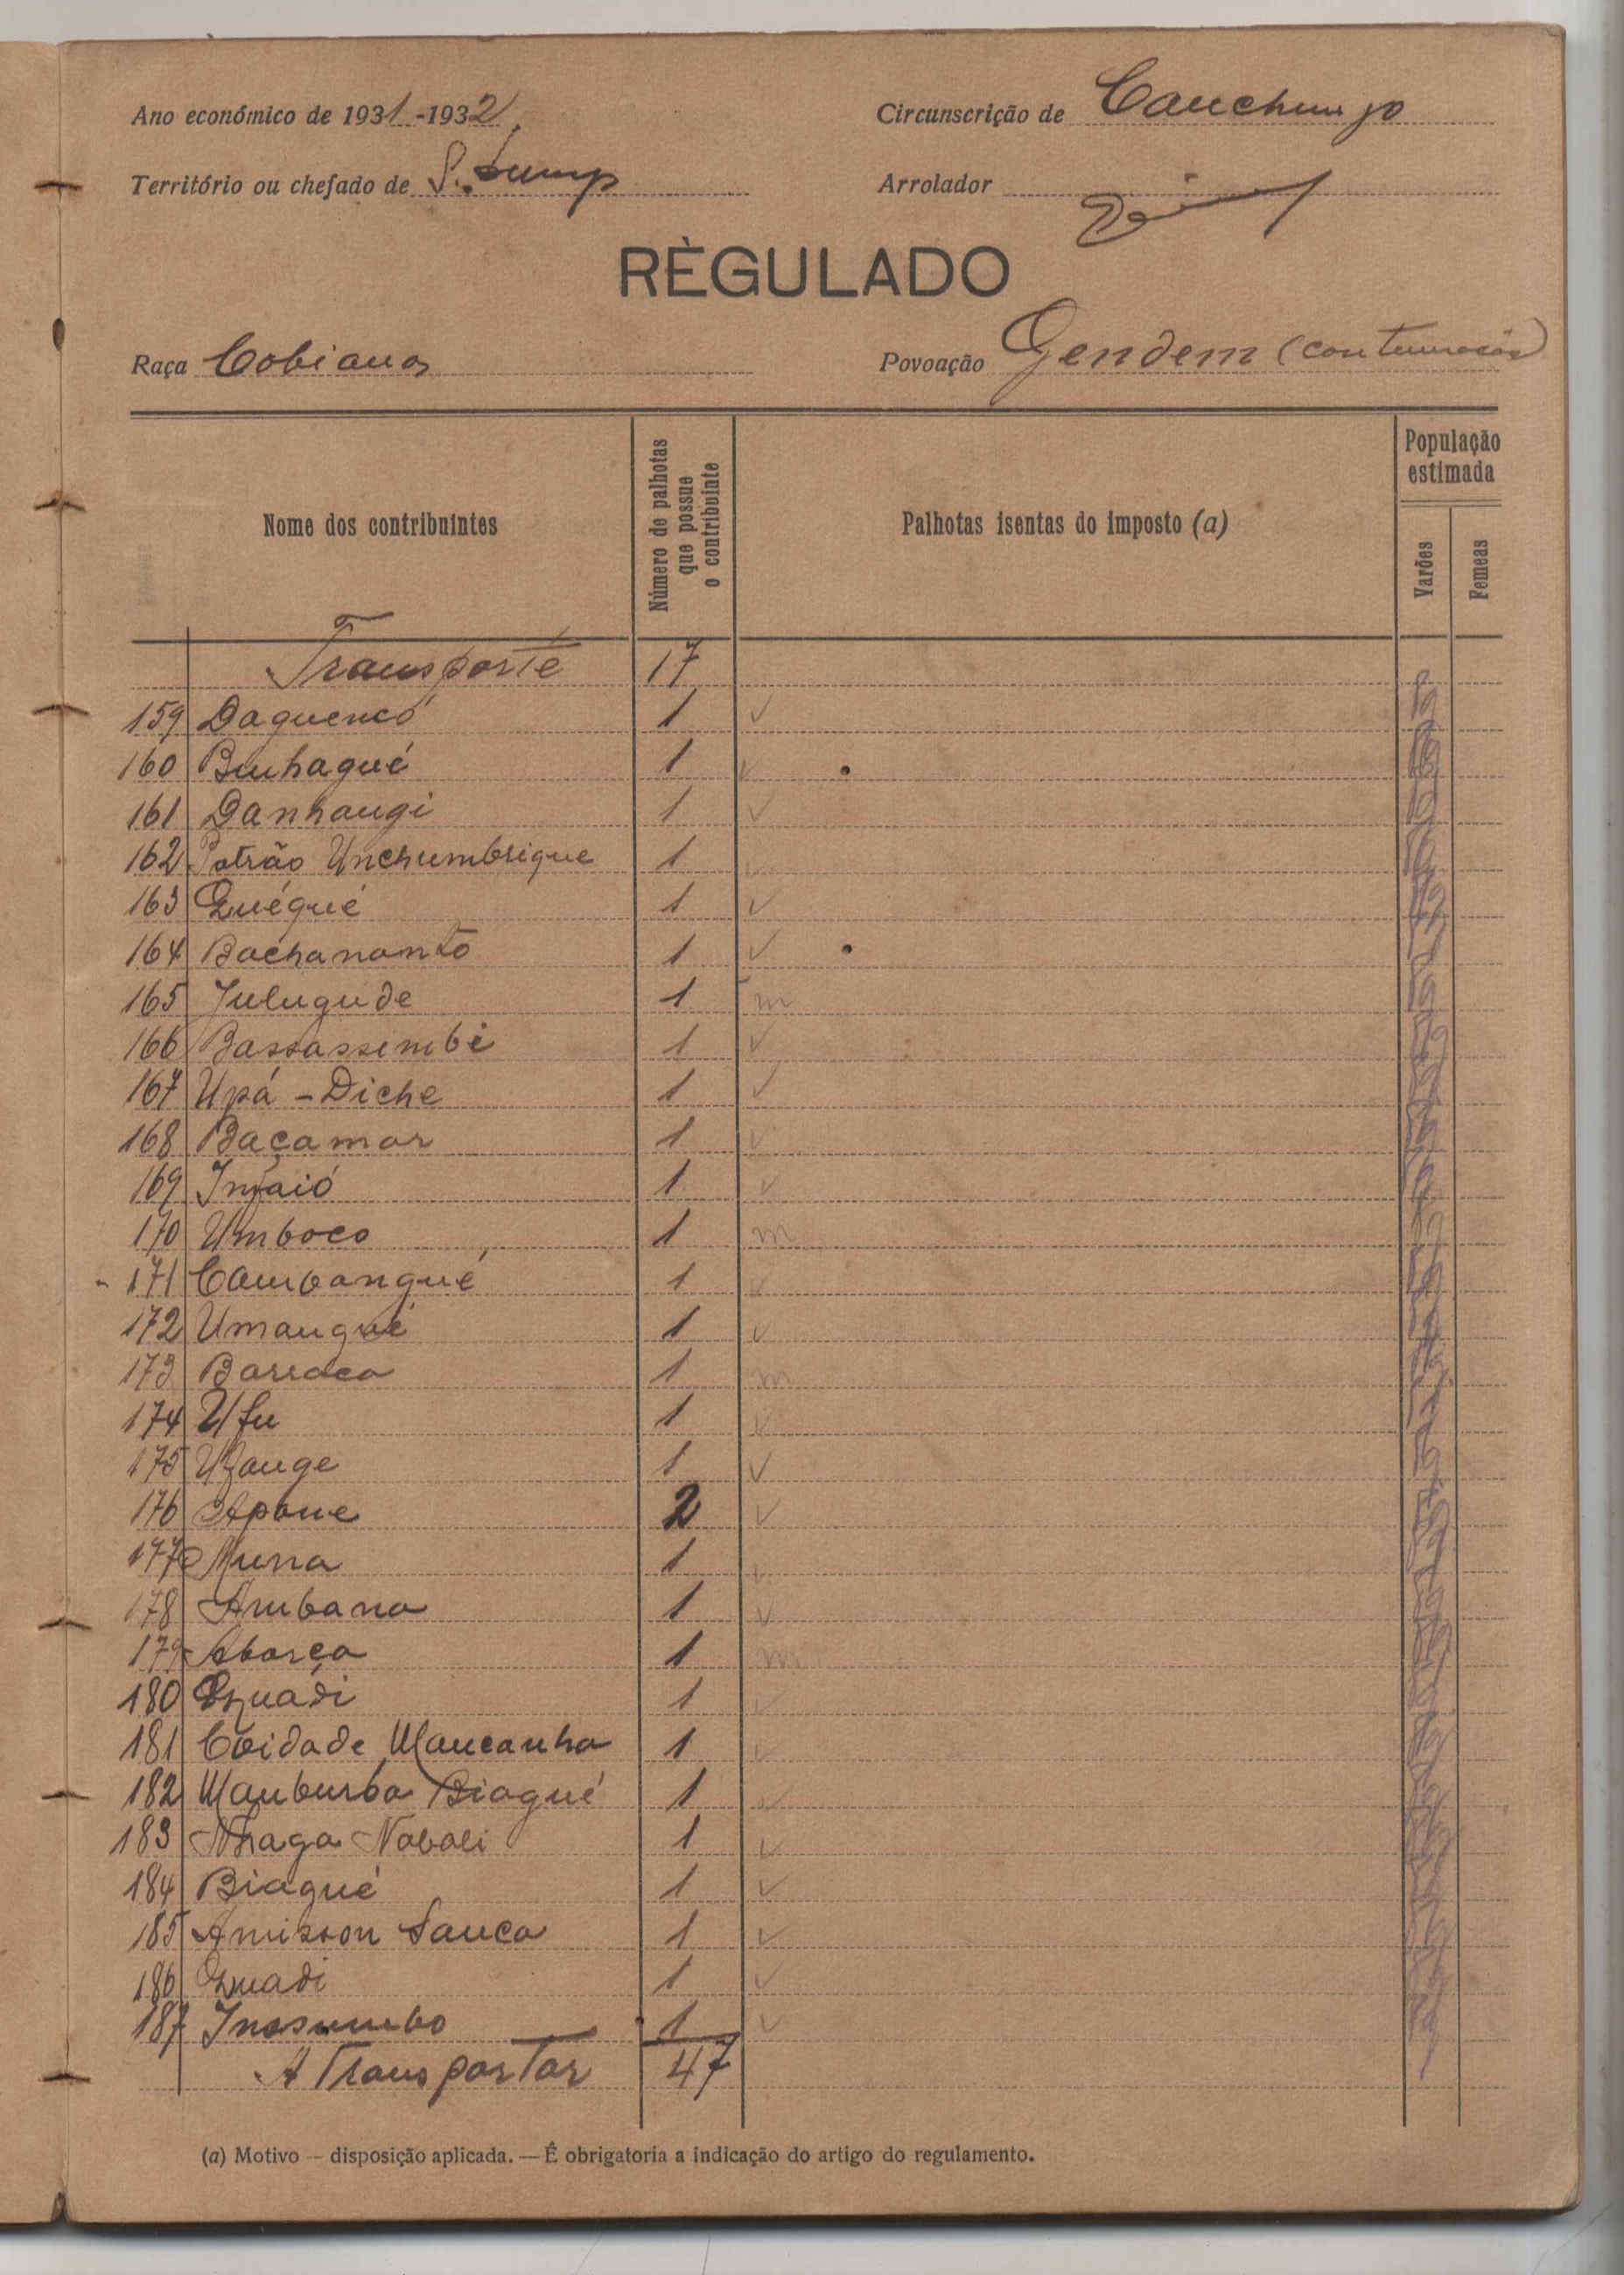 Ano económico de 1931-1932
Circunscrição de Canchungo
Território ou chefado de
Arrolador
RÈGULADO
Raça Cobianos
Povoação Gendem (continuação)
Nome dos contribuintes
Número de palhotas que possue o contribuinte
Palhotas isentas do imposto (a)
População estimada
Varões
Femeas
Transporte 17
159 Daguencó 1
160 Binhagué 1
161 Danhaugi 1
162 Patrão Unchumbrique 1
163 Quéqué 1
164 Bachananto 1
165 Julugude 1 m
166 Bassassimbi 1
167 Upá - Diche 1
168 Baçamar 1
169 Injaió 1
170 Umboco 1 m
171 Cambangué 1
172 Umangué 1
173 Barraca 1 m
174 Ufu 1
175 Ufange 1
176 Apane 2
177 Munna 1
178 Ambana 1
179 Abarça 1 m
180 1
181 Coidade Mancanha 1
182 Manburba Biagué 1
183 Nhaga Nabali 1
184 Biagué 1
185 Amisson Sanca 1
186 1
187 Inssumbo 1
A Transportar 47
(a) Motivo — disposição aplicada. — É obrigatoria a indicação do artigo do regulamento.